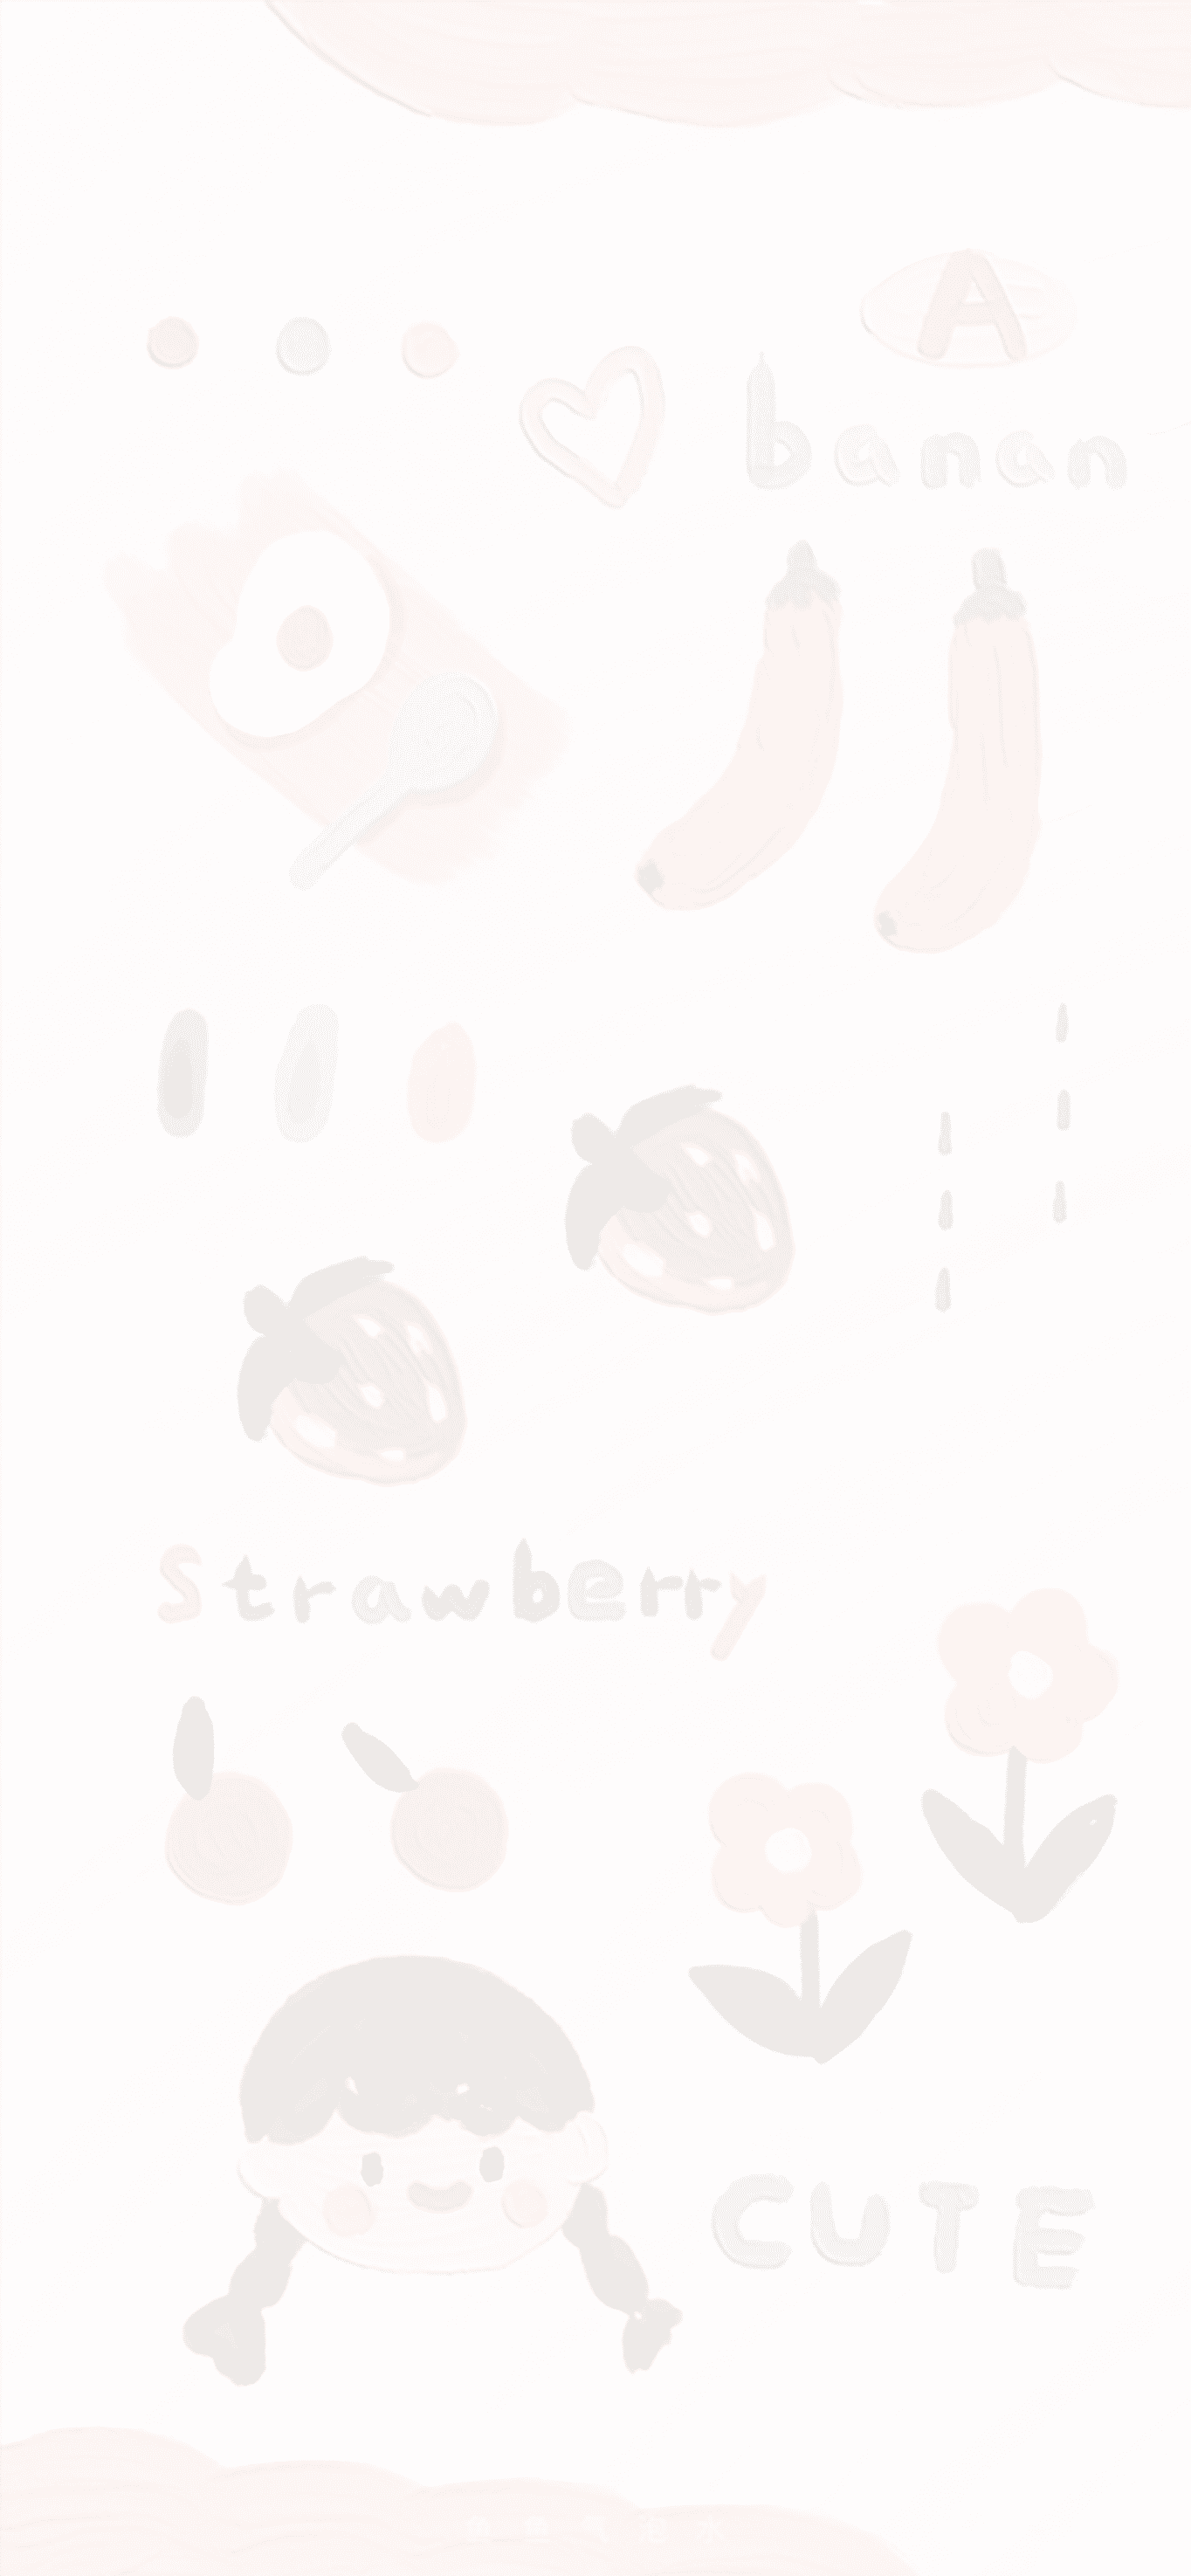 A
banan
Strawberry
CUTE